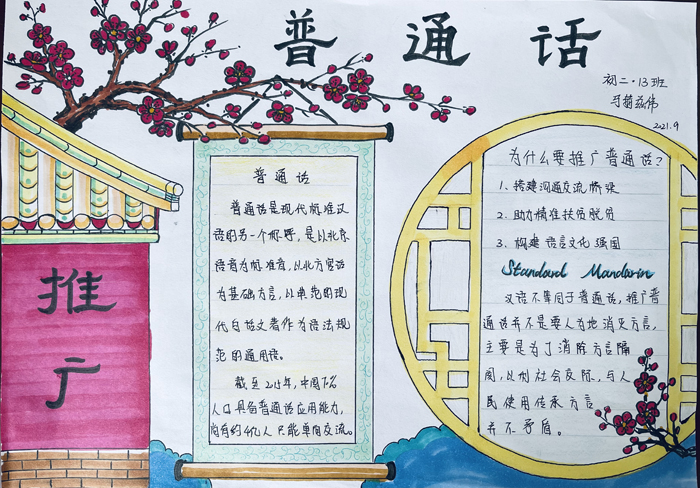 普通话
初二·13班
2021.9
推
广
普通话
普通话是现代标准汉
语的另一个称呼，是以北京
语音为标准音，以北方官话
为基础方言，以典范的现
代白话文著作为语法规
范的通用语。
截至2015年，中国70%
人口具备普通话应用能力，
尚有约4亿人只能单向交流。
为什么要推广普通话？
1、搭建沟通交流桥梁
2、助力精准扶贫脱贫
3、构建语言文化强国
Standard Mandarin
汉语不等同于普通话，推广普
通话并不是要人为地消灭方言，
主要是为了消除方言隔
阂，以利社会交际，与人
民使用传承方言
并不矛盾。